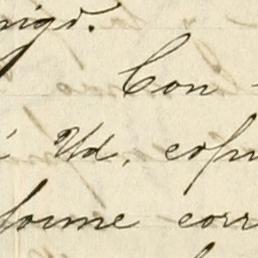 migo.
Con
é Ud. copi
forme corr